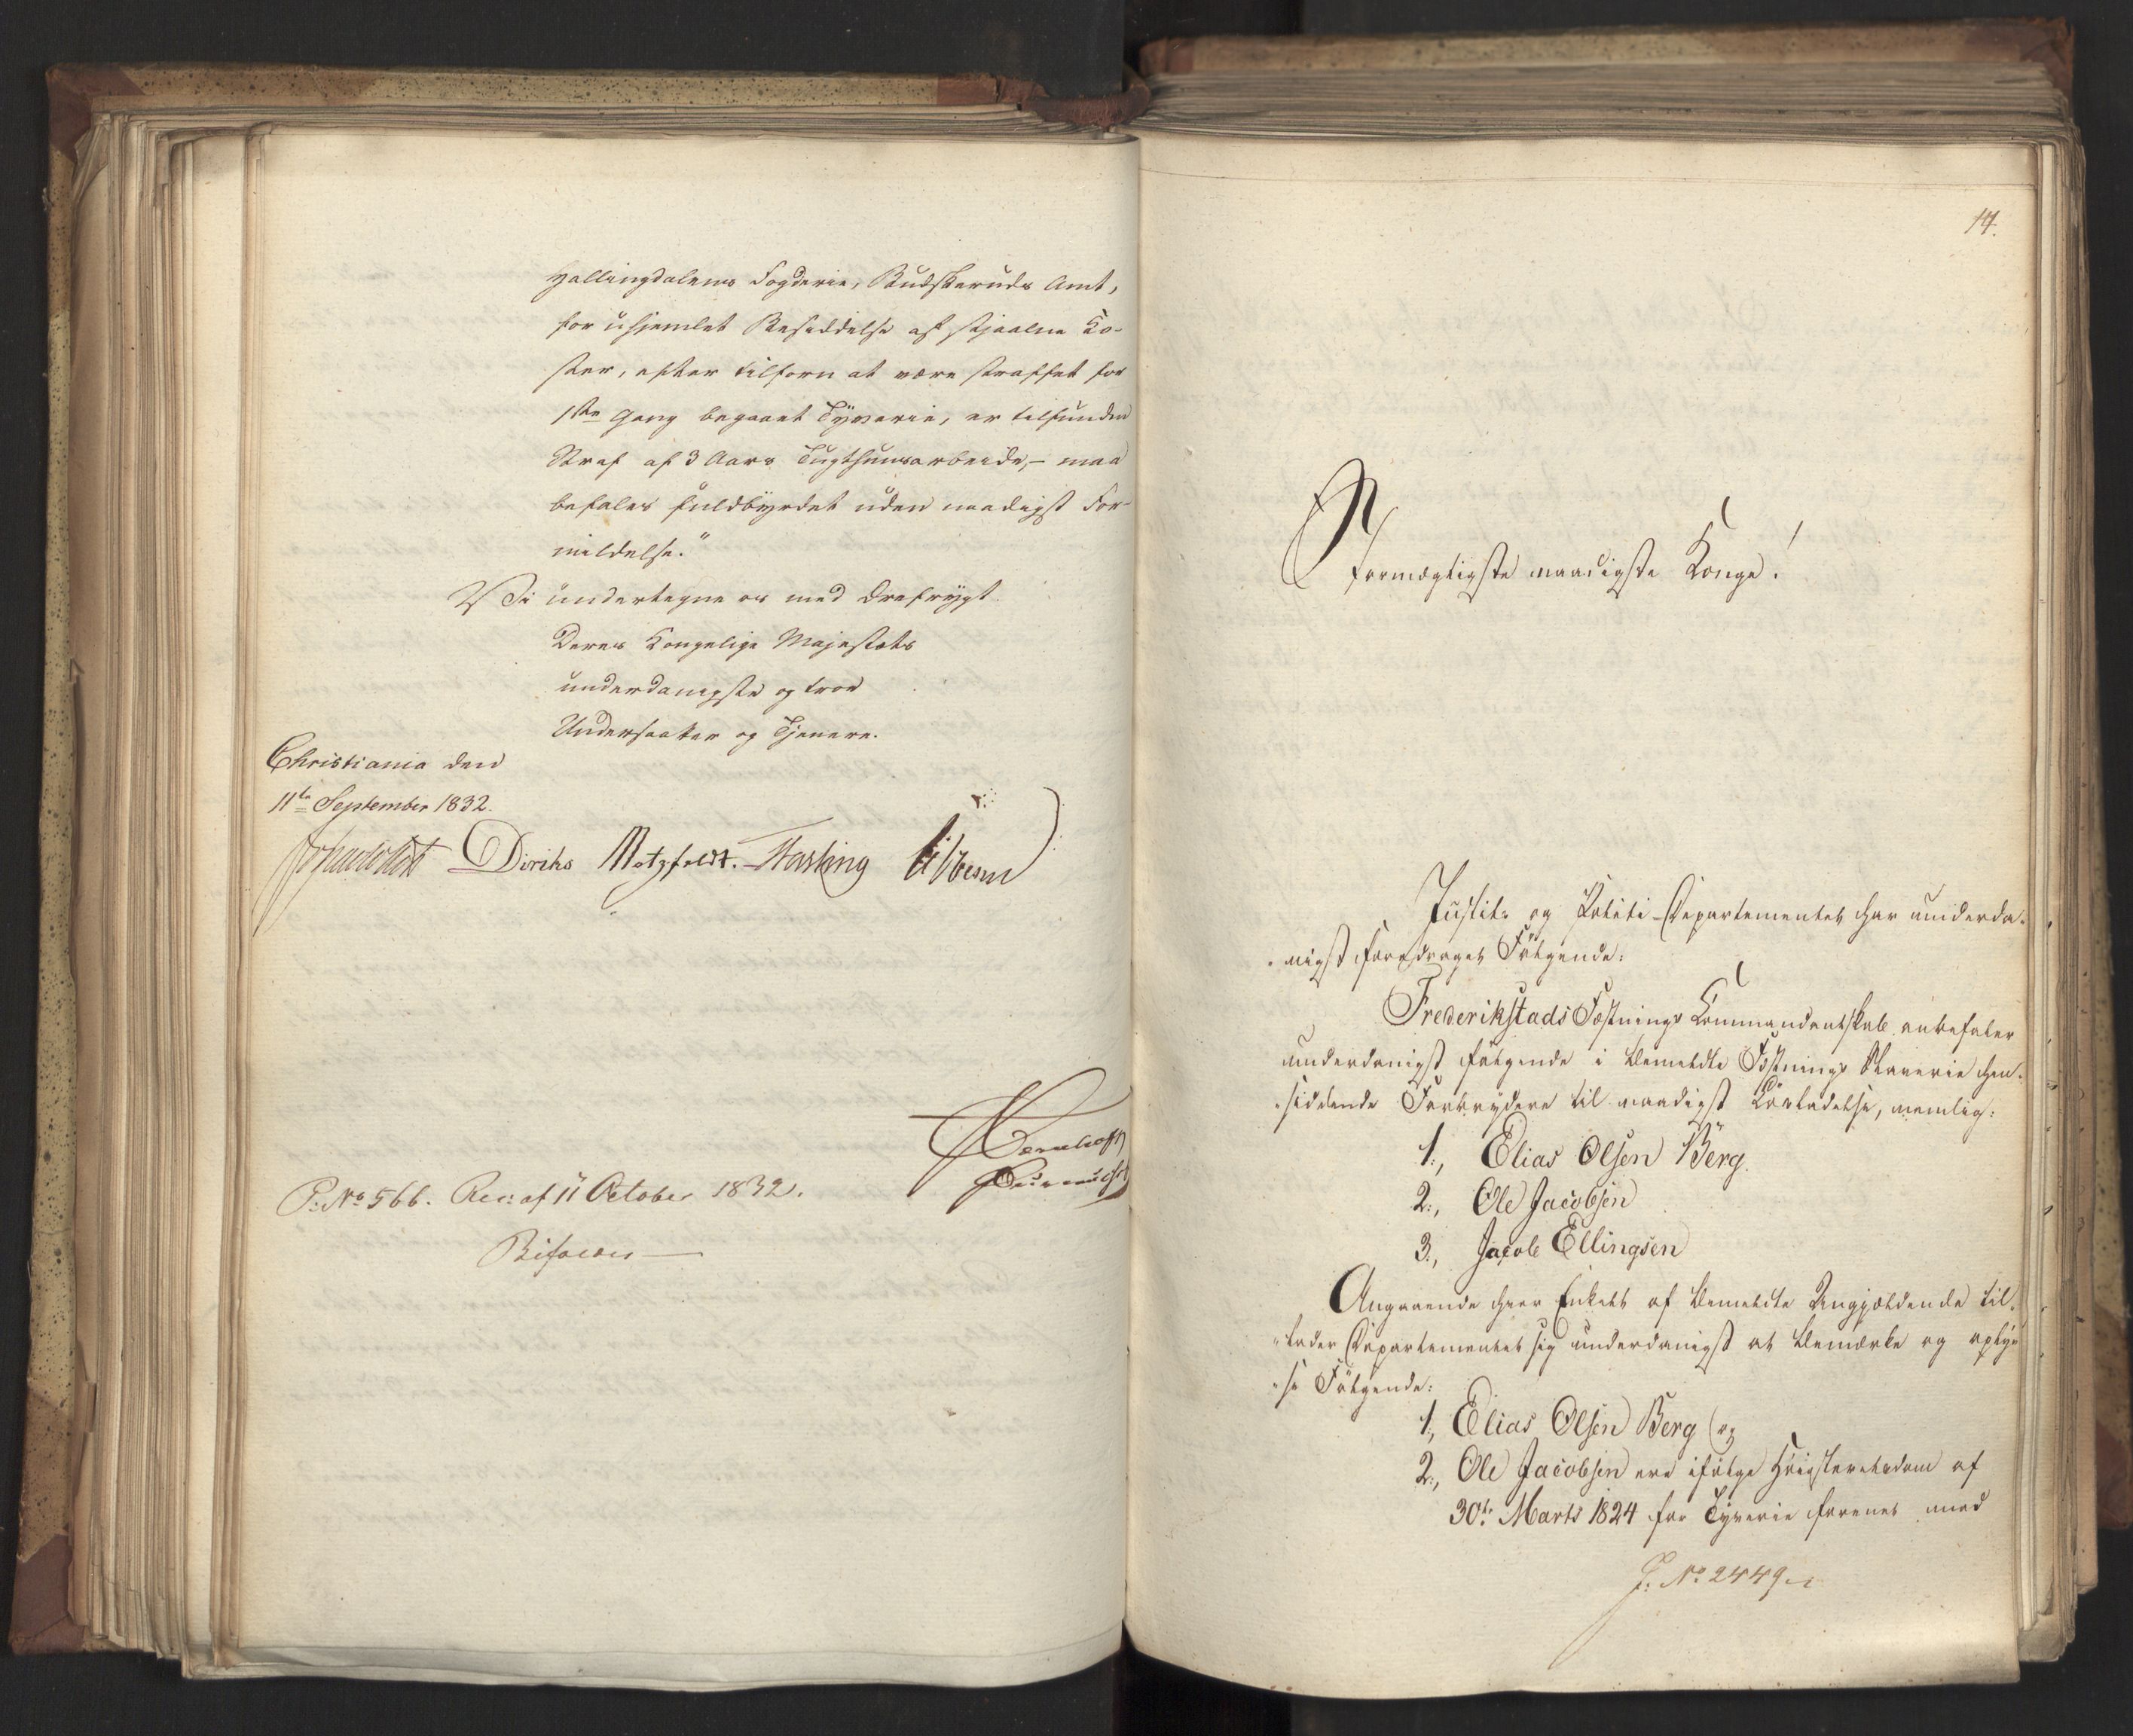 Hallingdalens Fogderie, Budskeruds Amt,
for uhjemlet Besiddelse af stjaalne Ko-
ster, efter tilforn at være straffet for
1ste Gang begaaet Tyverie, er tilfunden
Straf af 3 Aars Tugthuusarbeide, - maa
befales fuldbyrdet uden naadigst For-
mildelse."
Vi undertegne os med Ærefrygt
Deres Kongelige Majestæts
underdanigste og troe
Undersaatter og Tjenere.
Christiania den
11te September 1832.
Diriks Motzfeldt. Fasting Vibe
P: No 566. Res: af 11 October 1832.
Bifaldes
14.
Stormægtigste naadigste Konge!
Justits og Politi-Departementet har underda-
nigst foredraget Følgende:
Frederikstads Fæstnings Kommandantskab anbefaler
underdanigst følgende i bemeldte Fæstnings Slaverie hen-
siddende Forbrydere til naadigst Løsladelse, nemlig:
1., Elias Olsen Berg.
2., Ole Jacobsen
3., Jacob Ellingsen
Angaaende hver Enkelt af bemeldte Angjældende til-
lader Departementet sig underdanigst at bemærke og oply-
se Følgende:
1., Elias Olsen Berg og
2., Ole Jacobsen ere ifølge Høiesteretsdom af
30te Marts 1824 for Tyverie forenet med
J: No 2449